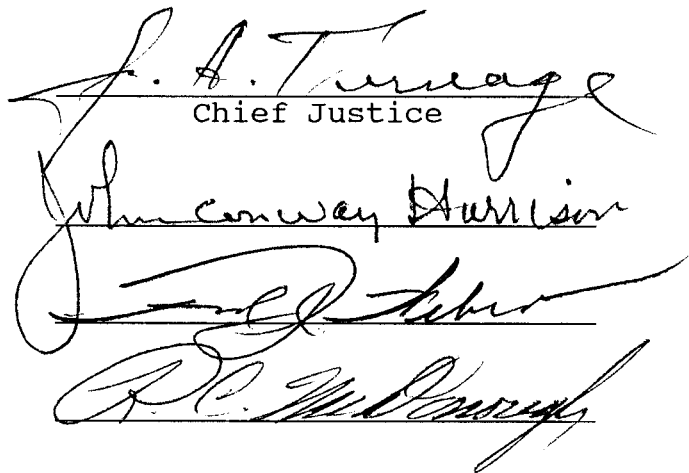 J. A. Turnage
Chief Justice
John Conway Harrison
Fred J. Weber
R. C. McDonough